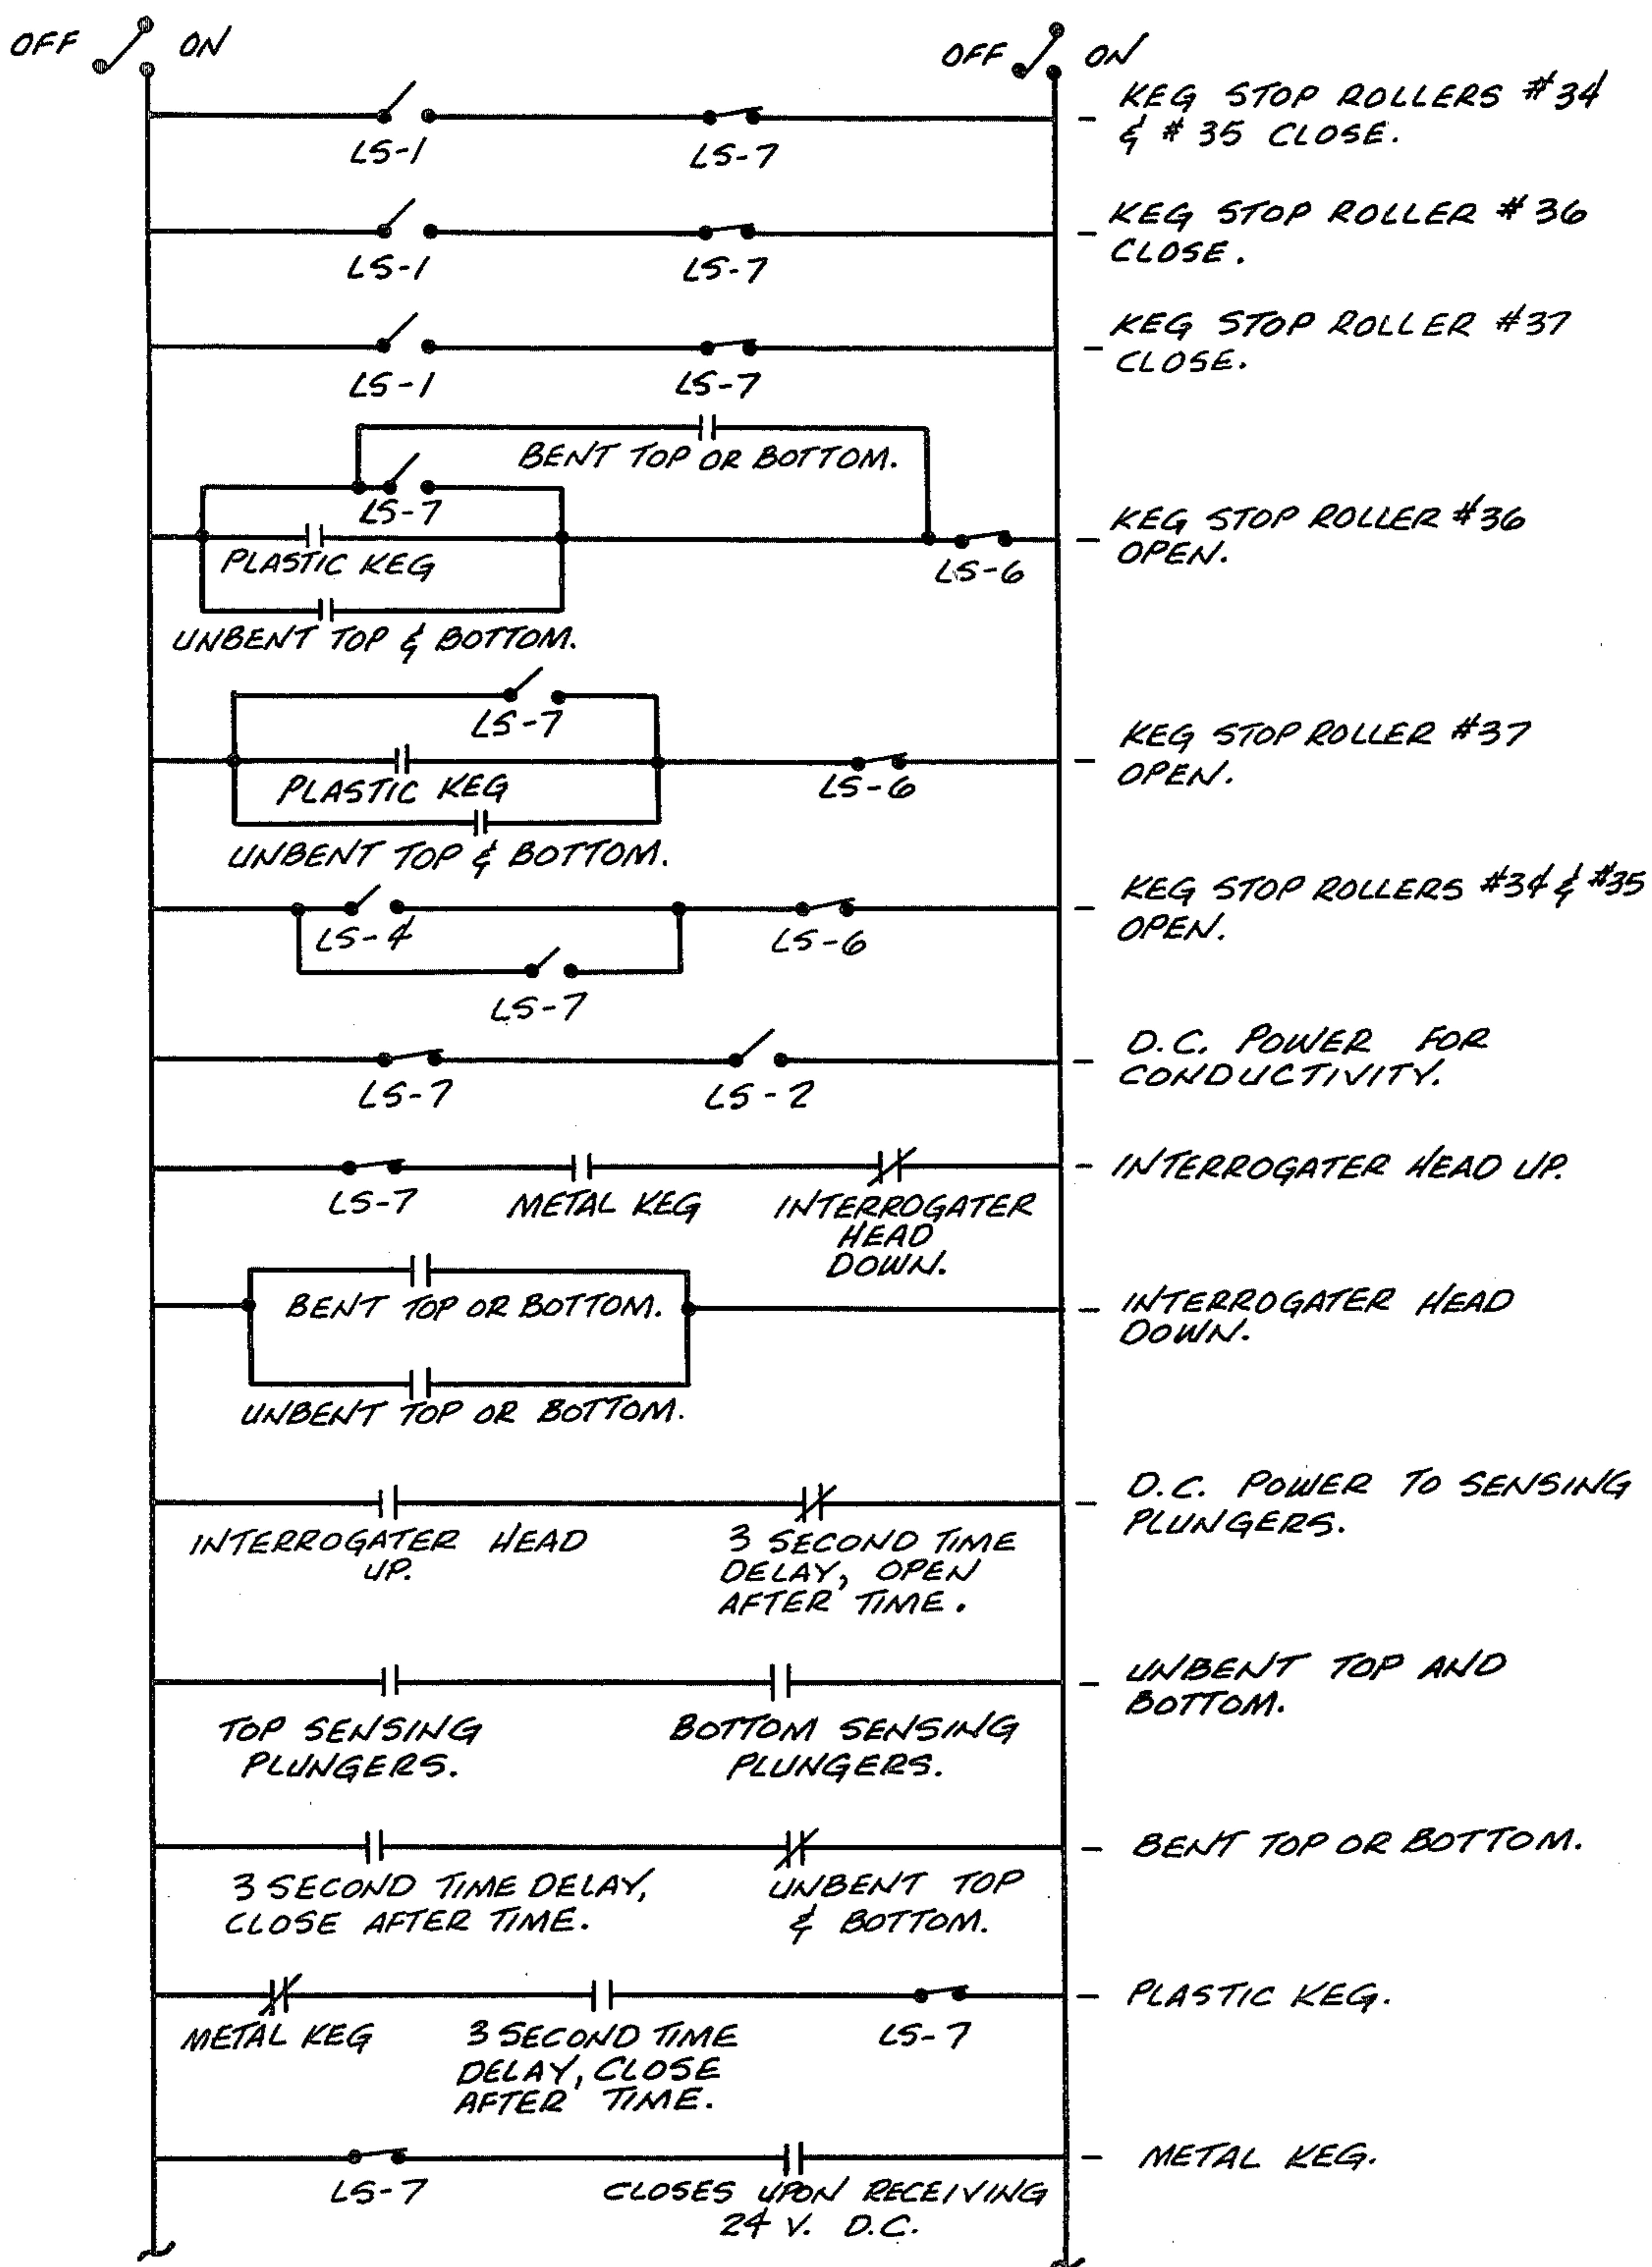 OFF ON
OFF ON
KEG STOP ROLLERS #34
& # 35 CLOSE.
LS-1
LS-7
KEG STOP ROLLER #36
CLOSE.
LS-1
LS-7
KEG STOP ROLLER #37
CLOSE.
LS-1
LS-7
BENT TOP OR BOTTOM.
LS-7
PLASTIC KEG
UNBENT TOP & BOTTOM.
LS-6
KEG STOP ROLLER #36
OPEN.
LS-7
PLASTIC KEG
UNBENT TOP & BOTTOM.
LS-6
KEG STOP ROLLER #37
OPEN.
LS-4
LS-7
LS-6
KEG STOP ROLLERS #34 & #35
OPEN.
LS-7
LS-2
D.C. POWER FOR
CONDUCTIVITY.
LS-7
METAL KEG
INTERROGATER
HEAD
DOWN.
INTERROGATER HEAD UP.
BENT TOP OR BOTTOM.
UNBENT TOP OR BOTTOM.
INTERROGATER HEAD
DOWN.
INTERROGATER HEAD
UP.
3 SECOND TIME
DELAY, OPEN
AFTER TIME.
D.C. POWER TO SENSING
PLUNGERS.
TOP SENSING
PLUNGERS.
BOTTOM SENSING
PLUNGERS.
UNBENT TOP AND
BOTTOM.
3 SECOND TIME DELAY,
CLOSE AFTER TIME.
UNBENT TOP
& BOTTOM.
BENT TOP OR BOTTOM.
METAL KEG
3 SECOND TIME
DELAY, CLOSE
AFTER TIME.
LS-7
PLASTIC KEG.
LS-7
CLOSES UPON RECEIVING
24 V. D.C.
METAL KEG.